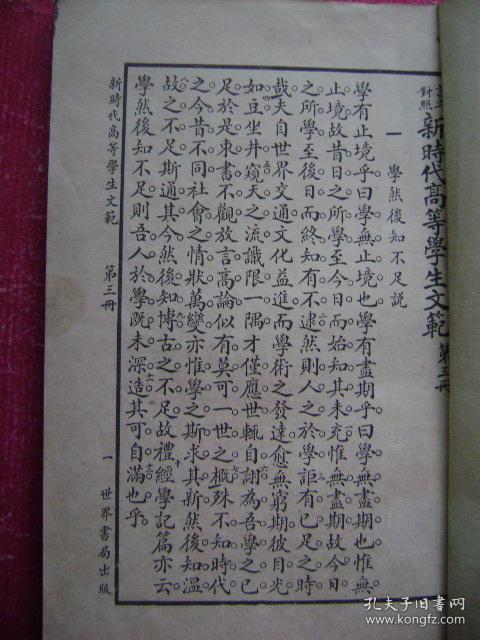 對照新時代高等學生文範 第三冊
一 學然後知不足説
學有止境乎曰學無止境也學有盡期乎曰學無盡期也惟無
止境故昔日之所學至今日而始知其未充惟無盡期故今日
之所學至後日而終知有不逮然則人之於學詎有已足之時
哉夫自世界交通文化益進而學術之發達愈無窮期彼目光
如豆坐井窺天之流識限一隅才僅應世輒自詡為吾學之已
足於是束書不觀放言高論似有莫可一世之概殊不知時代
之今昔不同社會之情狀萬變亦惟學之斯求其新然後知溫
故之不足斯通其今然後知博古之不足故禮經學記篇亦云
學然後知不足則吾人於學既未深造其可自滿也乎
新時代高等學生文範 第三冊 一 世界書局出版
孔夫子旧書网
www.kongfz.com